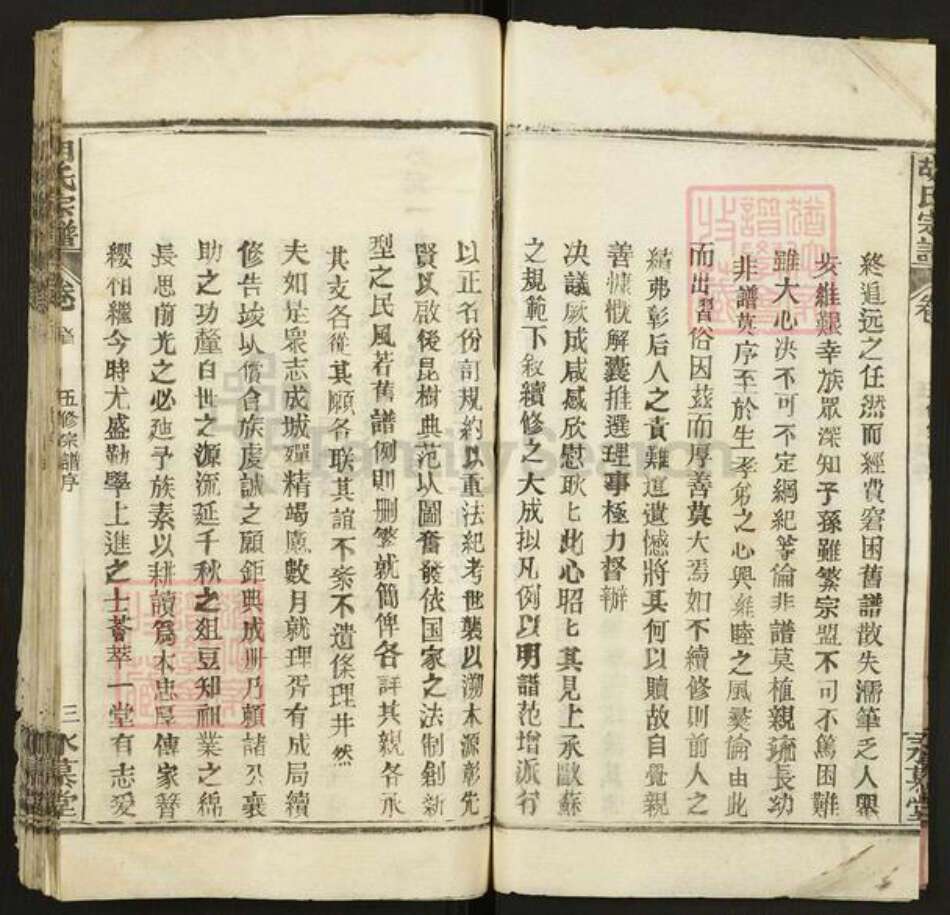 胡氏宗譜
卷
終追远之任然而經費窘困舊譜散失濡筆乏人舉
步維艱幸族眾深知子孫雖繁宗盟不可不篤困難
雖大心决不可不定綱紀等倫非譜莫植親疏長幼
非譜莫序至於生孝弟之心興雍睦之風彝倫由此
而出習俗因茲而厚善莫大焉如不續修則前人之
績弗彰后人之責難逭遺憾將其何以贖故自覺親
善慷慨解囊推選理事極力督辦
决議厥成咸感欣慰耿匕此心昭匕其見上承歐蘇
之規範下敘續修之大成拟凡例以明譜范增派行
永慕堂
以正名份訂規約以重法紀考世襲以溯木源彰先
賢以啟後昆樹典范以圖奮發依国家之法制創新
型之民風若舊譜例則删繁就簡俾各詳其親各承
其支各從其願各联其誼不紊不遺條理井然
夫如是眾志成城殫精竭慮數月就理胥有成局續
修告竣以償合族虔誠之願鉅典成册乃頼諸公襄
助之功釐百世之源流延千秋之俎豆知祖業之綿
長思前光之必廸予族素以耕讀爲本忠厚傳家簪
纓相繼今時尤盛勤學上進之士薈萃一堂有志爱
胡氏宗譜
卷
五修宗譜序
三
永慕堂
FamilySearch